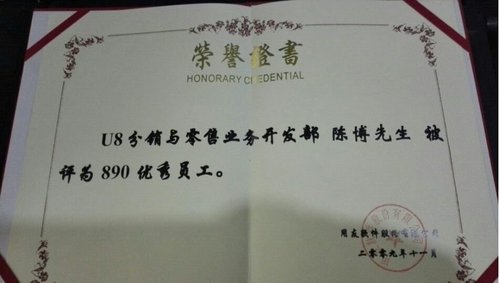 榮譽證書
HONORARY CREDENTIAL
U8分销与零售业务开发部 陈博先生 被
评为 890 优秀员工。
用友软件股份有限公司
二零零九年十一月